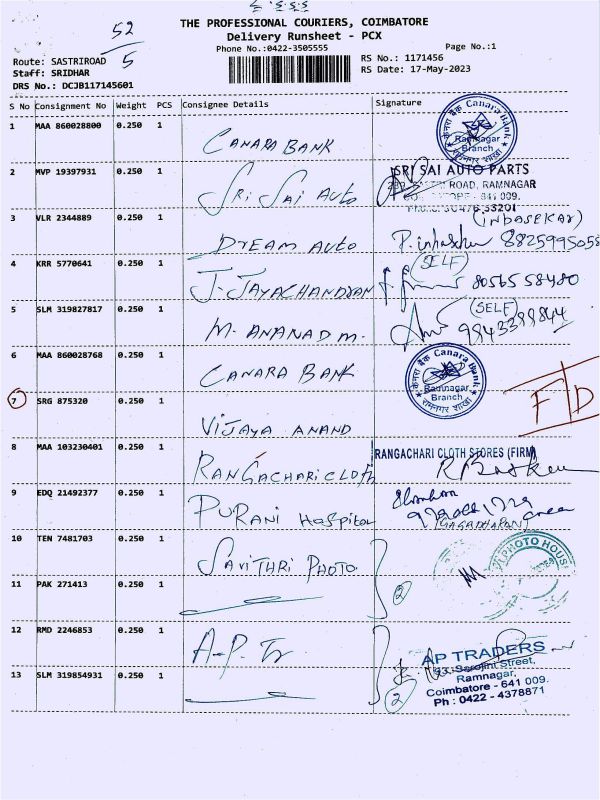 52
5
THE PROFESSIONAL COURIERS, COIMBATORE
Delivery Runsheet - PCX
Phone No.:0422-3505555
Page No.:1
Route: SASTRIROAD
RS No.: 1171456
Staff: SRIDHAR
RS Date: 17-May-2023
DRS No.: DCJB117145601
S No Consignment No Weight PCS Consignee Details Signature
1 MAA 860028800 0.250 1 CANARA BANK
Canara Bank
Ramnagar
Branch
2 MVP 19397931 0.250 1 SRI SAI AUTO
SRI SAI AUTO PARTS
ROAD, RAMNAGAR
641 009.
3 VLR 2344889 0.250 1 DREAM AUTO
(INBASEKAR)
8825995058
4 KRR 5770641 0.250 1 J. JAYACHANDRAN
(SELF)
80565 58480
5 SLM 319827817 0.250 1 M. ANANAD M.
(SELF)
9843388844
6 MAA 860028768 0.250 1 CANARA BANK
Canara Bank
Ramnagar
Branch
7 SRG 875320 0.250 1 VIJAYA ANAND
F D
8 MAA 103230401 0.250 1 RANGACHARI CLOTH
RANGACHARI CLOTH STORES (FIRM)
9 EDQ 21492377 0.250 1 PURANI Hospital
(GAGADHARAN)
10 TEN 7481703 0.250 1 SAVITHRI PHOTO
PHOTO HOUSE
11 PAK 271413 0.250 1
2
12 RMD 2246853 0.250 1 A.P. Tr
AP TRADERS
Sarojini Street,
Ramnagar,
13 SLM 319854931 0.250 1
2
Coimbatore - 641 009.
Ph : 0422 - 4378871